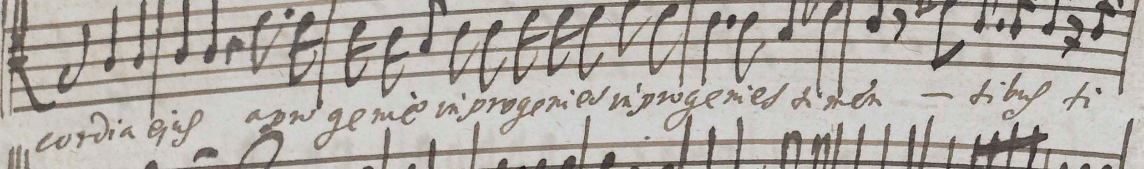 cordia ejus a pro genie in progenies in progenies timen – tibus ti